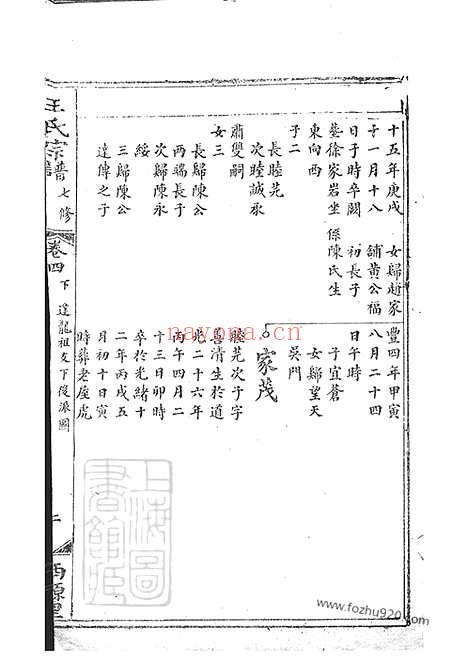 十五年庚戌
十一月十八
日子時卒關
墓徐家岩坐
東向西
子二
長睦芫
次睦誠承
肅雙嗣
女三
長歸陳公
两端長子
次歸陳永
綏
三歸陳公
達傳之子
女歸趙家
舖黃公福
初長子
係陳氏生
豐四年甲寅
八月二十四
日午時
子宜蒼
女歸望天
吳門
家茂
睦芫次子字
清生於道
光二十六年
丙午四月二
十三日卯時
卒於光緒十
二年丙戌五
月初十日寅
時葬老屋虎
王氏宗譜 七修 卷四 下 達龍祖支下後派圖
上海圖書館藏
nayona.cn
www.fozhu920.com